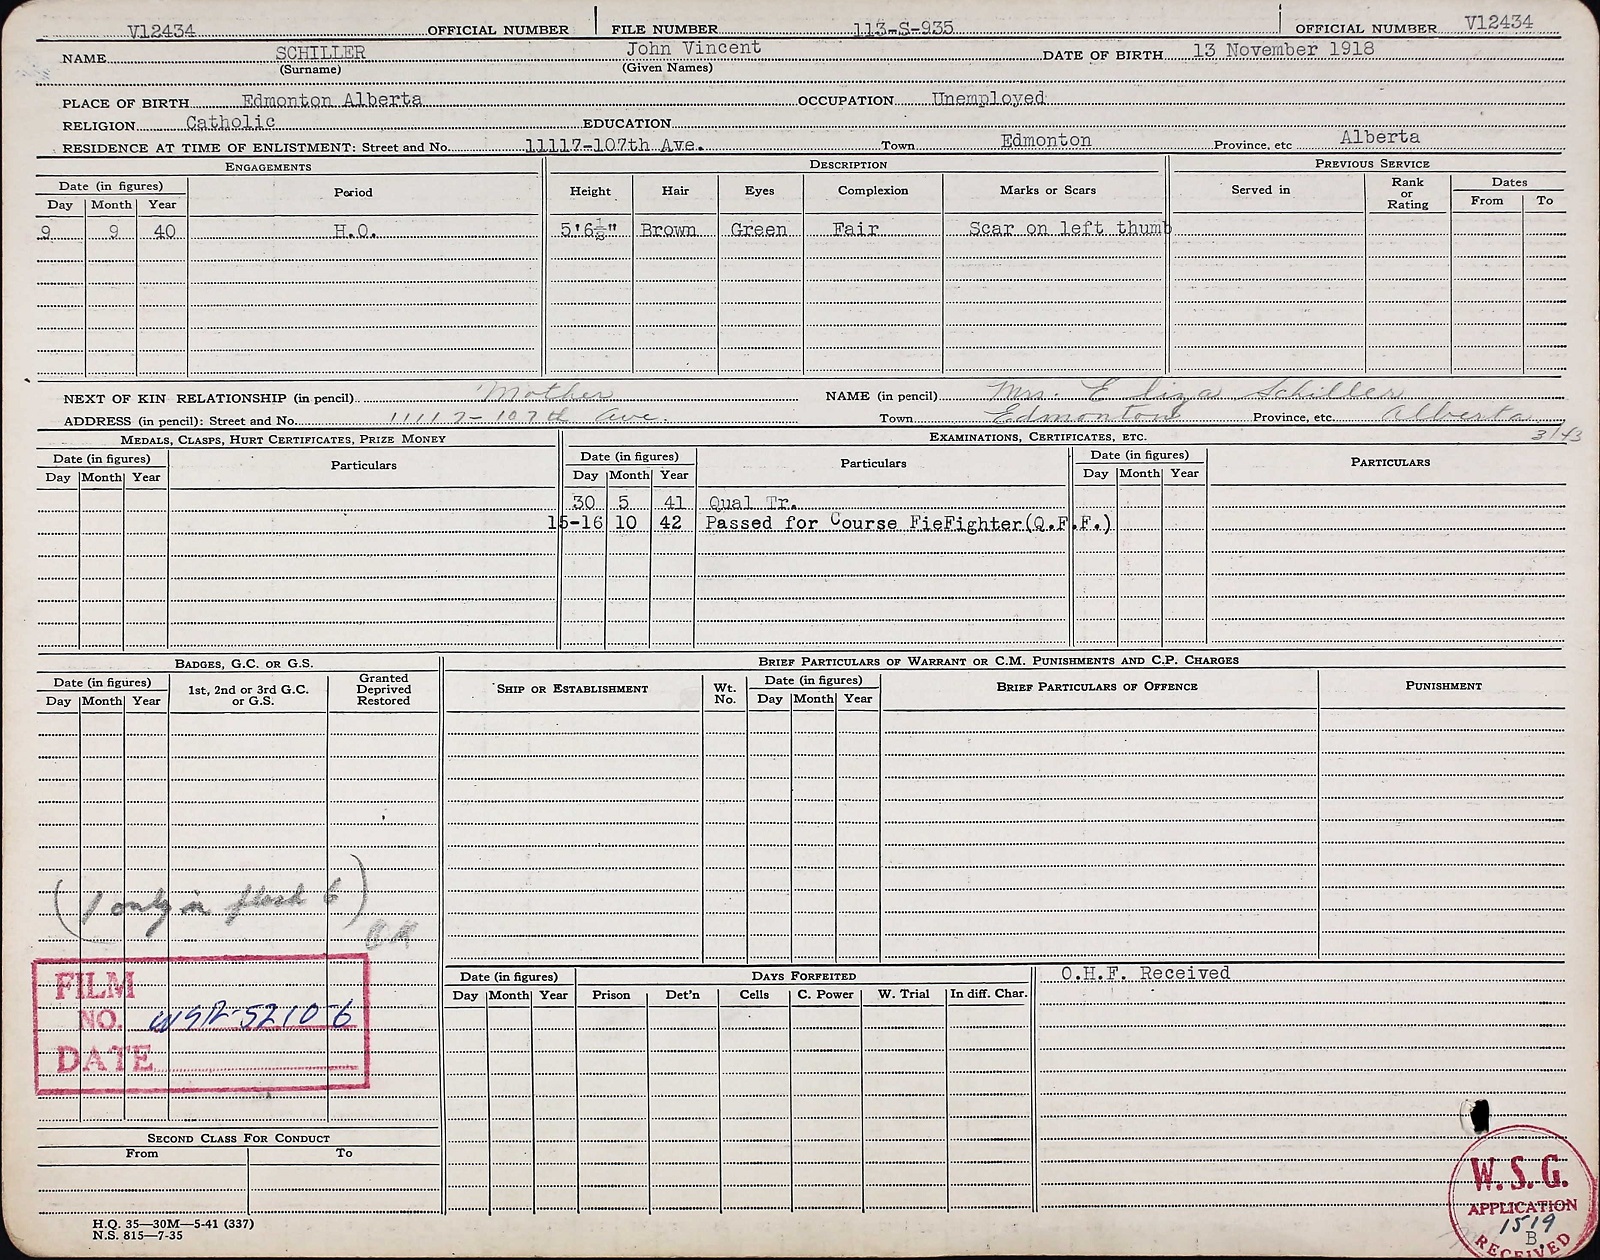 V12434 OFFICIAL NUMBER FILE NUMBER 113-S-935 OFFICIAL NUMBER V12434
NAME SCHILLER John Vincent DATE OF BIRTH 13 November 1918
(Surname) (Given Names)
PLACE OF BIRTH Edmonton Alberta OCCUPATION Unemployed
RELIGION Catholic EDUCATION
RESIDENCE AT TIME OF ENLISTMENT: Street and No. 11117-107th Ave. Town Edmonton Province, etc Alberta
ENGAGEMENTS DESCRIPTION PREVIOUS SERVICE
Date (in figures) Period Height Hair Eyes Complexion Marks or Scars Served in Rank or Rating Dates
Day Month Year From To
9 9 40 H.O. 5'6½" Brown Green Fair Scar on left thumb
NEXT OF KIN RELATIONSHIP (in pencil) Mother NAME (in pencil) Mrs. Eliza Schiller
ADDRESS (in pencil): Street and No. 11117-107th Ave. Town Edmonton Province, etc. Alberta
3/43
MEDALS, CLASPS, HURT CERTIFICATES, PRIZE MONEY EXAMINATIONS, CERTIFICATES, ETC.
Date (in figures) Particulars Date (in figures) Particulars Date (in figures) PARTICULARS
Day Month Year Day Month Year Day Month Year
30 5 41 Qual Tr.
15-16 10 42 Passed for Course FieFighter(Q.F.F.)
BADGES, G.C. OR G.S. BRIEF PARTICULARS OF WARRANT OR C.M. PUNISHMENTS AND C.P. CHARGES
Date (in figures) 1st, 2nd or 3rd G.C. or G.S. Granted Deprived Restored SHIP OR ESTABLISHMENT Wt. No. Date (in figures) BRIEF PARTICULARS OF OFFENCE PUNISHMENT
Day Month Year Day Month Year
(1 only in 6)
FILM
NO. WSR-5210-6
DATE
Date (in figures) DAYS FORFEITED O.H.F. Received
Day Month Year Prison Det'n Cells C. Power W. Trial In diff. Char.
SECOND CLASS FOR CONDUCT
From To
H.Q. 35—30M—5-41 (337)
N.S. 815—7-35
W.S.G.
APPLICATION
1519
B.
RECEIVED